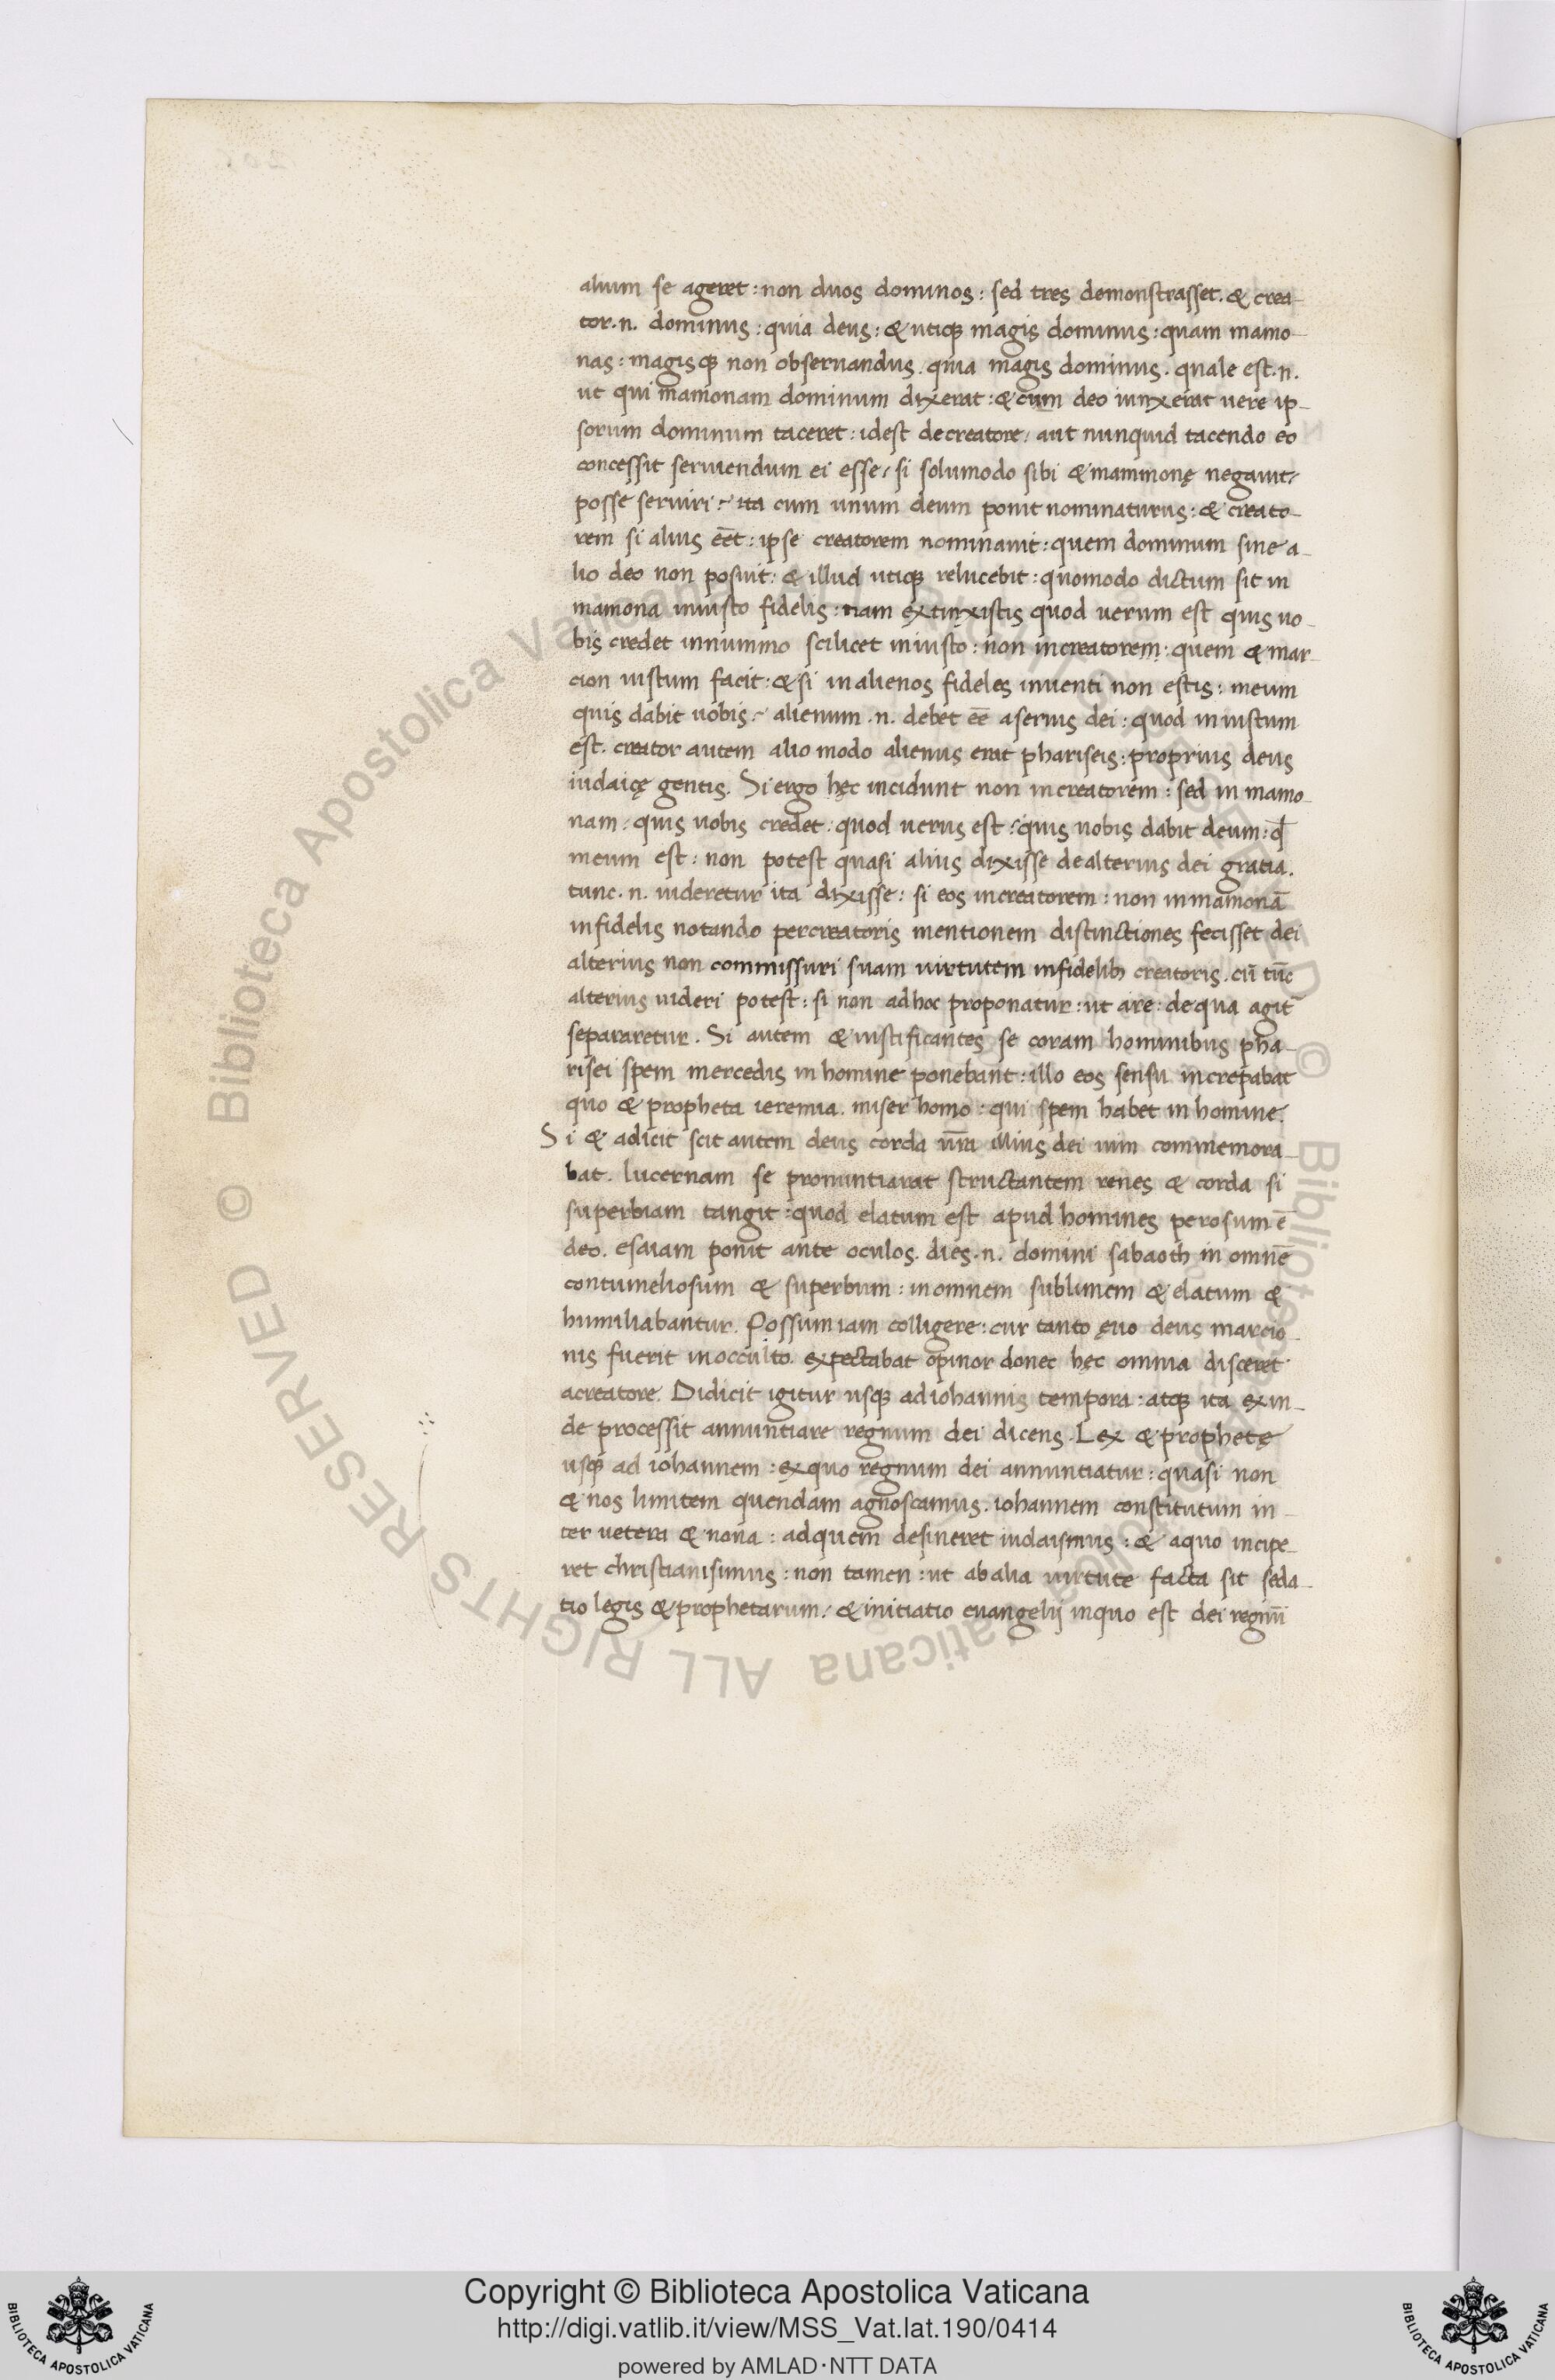 alium se ageret : non duos dominos : sed tres demonstrasset. & crea-
tor .n. dominus : quia deus : & utiqꝫ magis dominus : quam mamo-
nas : magisqꝫ non obseruandus . quia magis dominus . quale est .n.
ut qui mamonam dominum dixerat : & cum deo iunxerat uere ip-
sorum dominum taceret : idest decreatore / aut nunquid tacendo eo
concessit seruiendum ei esse / si solumodo sibi & mammonę negauit /
posse seruiri : / ita cum unum deum ponit nominaturus : & creato-
rem si alius eēt : ipse creatorem nominauit : quem dominum sine a-
lio deo non posuit : & illud utiqꝫ relucebit : quomodo dictum sit in
mamona iniusto fidelis : nam extinxistis quod uerum est quis uo-
bis credet innummo scilicet iniusto : non increatorem : quem & mar-
cion iustum facit : & si inalienos fideles inuenti non estis : meum
quis dabit uobis : / alienum .n. debet eē aseruis dei : quod iniustum
est . creator autem alio modo alienus erat phariseis : proprius deus
iudaicę gentis . Si ergo hęc incidunt non increatorem : sed in mamo-
nam : quis uobis credet : quod uerus est : / quis uobis dabit deum : qđ
meum est : non potest quasi alius dixisse dealterius dei gratia .
tunc .n. uideretur ita dixisse : si eos increatorem : non inmamonā
infidelis notando percreatoris mentionem distinctiones fecisset dei
alterius non commissuri suam uirtutem infidelibꝫ creatoris . cū tūc
alterius uideri potest : si non adhoc proponatur : ut are : dequa agit
separaretur . Si autem & iustificantes se coram hominibus pha-
risei spem mercedis in homine ponebant : illo eos sensu increpabat
quo & propheta ieremia . miser homo : qui spem habet in homine .
Si & adicit scit autem deus corda ur̄a illius dei uim commemora-
bat . lucernam se pronuntiarat scructantem renes & corda si
superbiam tangit : quod elatum est apud homines perosum ē
deo . esaiam ponit ante oculos . dies .n. domini sabaoth in omnē
contumeliosum & superbum : inomnem sublimem & elatum &
humiliabantur . Possum iam colligere : cur tanto ęuo deus marcio-
nis fuerit inocculto . expectabat opinor donec hęc omnia disceret
acreatore . Didicit igitur usqꝫ adiohannis tempora : atqꝫ ita exin-
de processit annuntiare regnum dei dicens . Lex & prophetę
usqꝫ ad iohannem : exquo regnum dei annuntiatur : quasi non
& nos limitem quendam agnoscamus . iohannem constitutum in-
ter uetera & noua : adquem desineret iudaismus : & aquo incipe-
ret christianisimus : non tamen : ut abalia uirtute facta sit seda-
tio legis & prophetarum : / & initiatio euangelij inquo est dei regnū
© Biblioteca Apostolica Vaticana ALL RIGHTS RESERVED
Copyright © Biblioteca Apostolica Vaticana
http://digi.vatlib.it/view/MSS_Vat.lat.190/0414
powered by AMLAD·NTT DATA
BIBLIOTECA APOSTOLICA VATICANA
BIBLIOTECA APOSTOLICA VATICANA